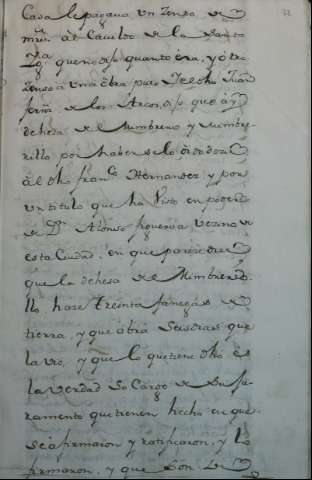 Casa le pagaua un Zenso de
mrs. al Cauildo de la Santa
Yga. que no dijo quanto era, y otro
Zenso a una obra pia. Y el dho Juan
de los Arcos, dijo que a
dehesa de Mimbrero y mimbre
rillo por haberselo
al dho franco. Hernandez y por
un titulo que ha visto en poder
de Dn. Alonso figueroa vezino de
esta Ciudad, en que parece
que la dehesa de Mimbreri
llo haze treinta fanegas de
tierra, y que abra seis dias que
la vio, y que lo que tiene dho es
la verdad so Cargo de su Ju
ramento que tienen hecho en que
se afirmaron y ratificaron, y lo
firmaron, y que son de